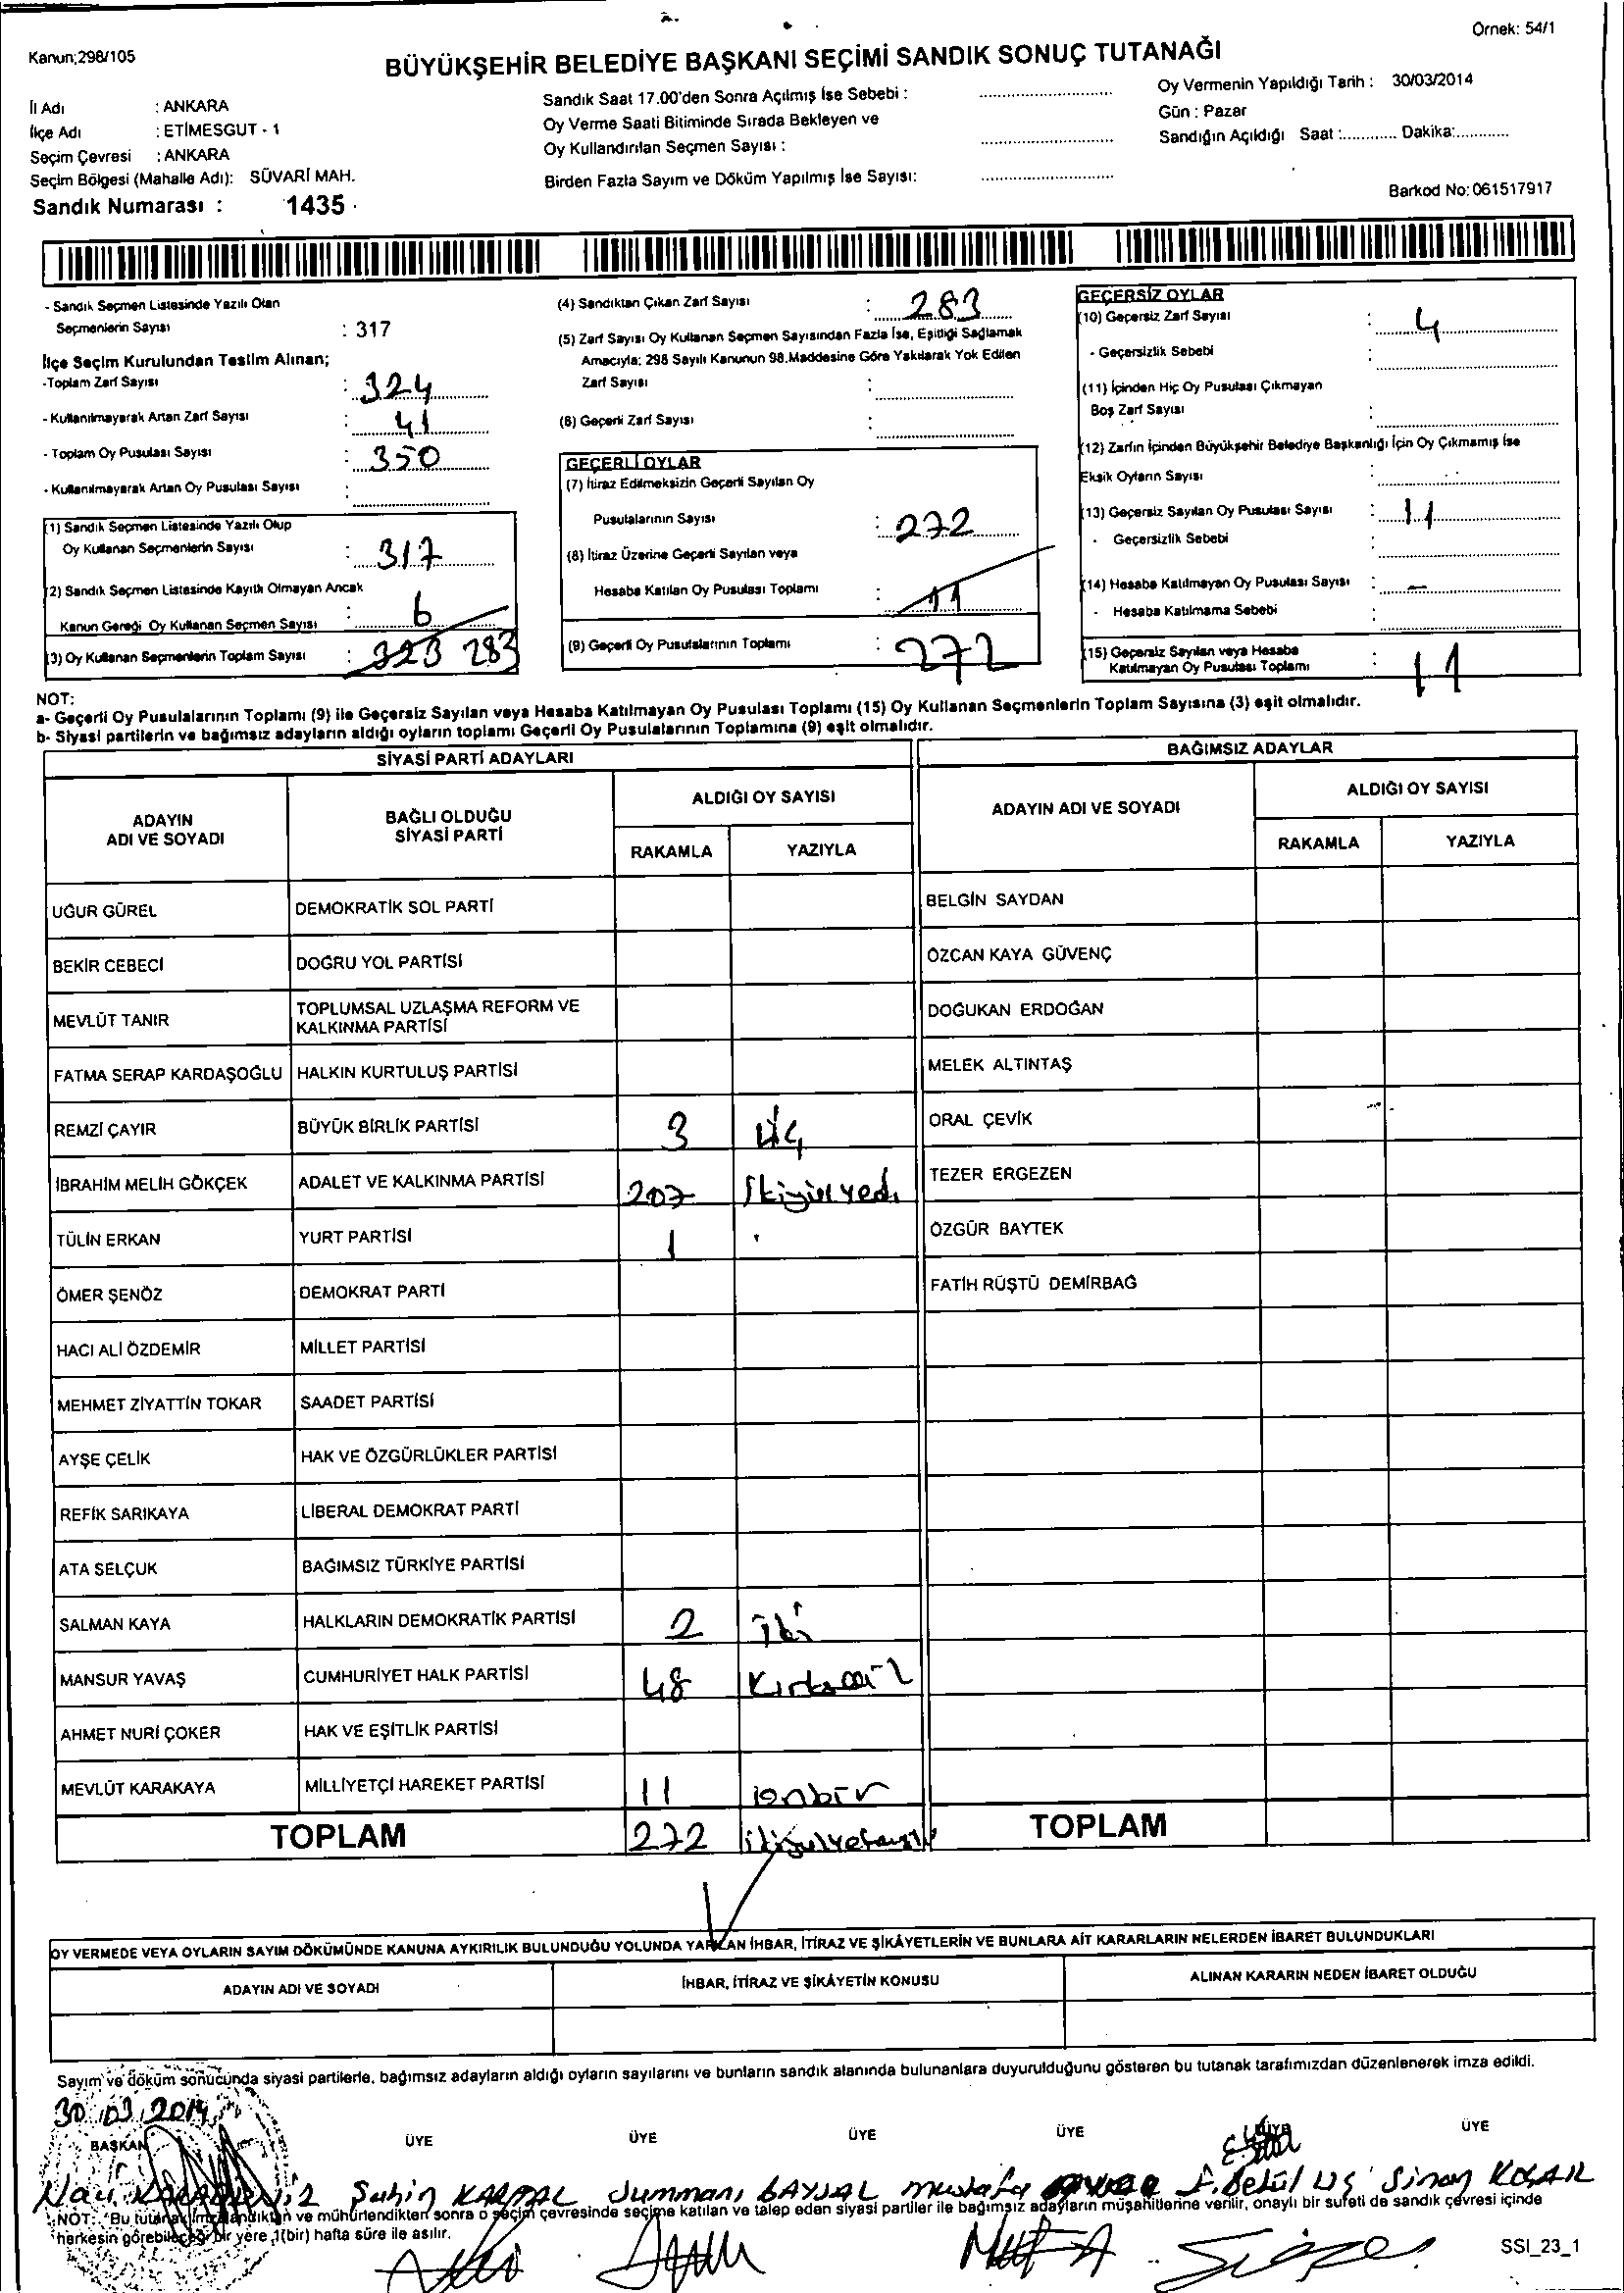 Örnek: 54/1
Kanun;298/105
BÜYÜKŞEHİR BELEDİYE BAŞKANI SEÇİMİ SANDIK SONUÇ TUTANAĞI
İl Adı : ANKARA
İlçe Adı : ETİMESGUT - 1
Seçim Çevresi : ANKARA
Seçim Bölgesi (Mahalle Adı): SÜVARİ MAH.
Sandık Numarası : 1435
Sandık Saat 17.00'den Sonra Açılmış İse Sebebi :
Oy Verme Saati Bitiminde Sırada Bekleyen ve
Oy Kullandırılan Seçmen Sayısı :
Birden Fazla Sayım ve Döküm Yapılmış İse Sayısı:
Oy Vermenin Yapıldığı Tarih : 30/03/2014
Gün : Pazar
Sandığın Açıldığı Saat :............ Dakika:...........
Barkod No: 061517917
- Sandık Seçmen Listesinde Yazılı Olan
Seçmenlerin Sayısı : 317
İlçe Seçim Kurulundan Teslim Alınan;
-Toplam Zarf Sayısı : 324
- Kullanılmayarak Artan Zarf Sayısı : 41
- Toplam Oy Pusulası Sayısı : 350
- Kullanılmayarak Artan Oy Pusulası Sayısı :
(1) Sandık Seçmen Listesinde Yazılı Olup
Oy Kullanan Seçmenlerin Sayısı : 317
(2) Sandık Seçmen Listesinde Kayıtlı Olmayan Ancak
Kanun Gereği Oy Kullanan Seçmen Sayısı : 6
(3) Oy Kullanan Seçmenlerin Toplam Sayısı : 323 283
(4) Sandıktan Çıkan Zarf Sayısı : 283
(5) Zarf Sayısı Oy Kullanan Seçmen Sayısından Fazla İse, Eşitliği Sağlamak
Amacıyla; 298 Sayılı Kanunun 98.Maddesine Göre Yakılarak Yok Edilen
Zarf Sayısı :
(6) Geçerli Zarf Sayısı :
GEÇERLİ OYLAR
(7) İtiraz Edilmeksizin Geçerli Sayılan Oy
Pusulalarının Sayısı : 272
(8) İtiraz Üzerine Geçerli Sayılan veya
Hesaba Katılan Oy Pusulası Toplamı : 11
(9) Geçerli Oy Pusulalarının Toplamı : 272
GEÇERSİZ OYLAR
(10) Geçersiz Zarf Sayısı : 4
- Geçersizlik Sebebi :
(11) İçinden Hiç Oy Pusulası Çıkmayan
Boş Zarf Sayısı :
(12) Zarfın İçinden Büyükşehir Belediye Başkanlığı İçin Oy Çıkmamış İse
Eksik Oyların Sayısı :
(13) Geçersiz Sayılan Oy Pusulası Sayısı : 11
- Geçersizlik Sebebi :
(14) Hesaba Katılmayan Oy Pusulası Sayısı : -
- Hesaba Katılmama Sebebi :
(15) Geçersiz Sayılan veya Hesaba
Katılmayan Oy Pusulası Toplamı : 11
NOT:
a- Geçerli Oy Pusulalarının Toplamı (9) ile Geçersiz Sayılan veya Hesaba Katılmayan Oy Pusulası Toplamı (15) Oy Kullanan Seçmenlerin Toplam Sayısına (3) eşit olmalıdır.
b- Siyasi partilerin ve bağımsız adayların aldığı oyların toplamı Geçerli Oy Pusulalarının Toplamına (9) eşit olmalıdır.
SİYASİ PARTİ ADAYLARI
ADAYIN
ADI VE SOYADI
BAĞLI OLDUĞU
SİYASİ PARTİ
ALDIĞI OY SAYISI
RAKAMLA YAZIYLA
UĞUR GÜREL DEMOKRATİK SOL PARTİ
BEKİR CEBECİ DOĞRU YOL PARTİSİ
MEVLÜT TANIR TOPLUMSAL UZLAŞMA REFORM VE
KALKINMA PARTİSİ
FATMA SERAP KARDAŞOĞLU HALKIN KURTULUŞ PARTİSİ
REMZİ ÇAYIR BÜYÜK BİRLİK PARTİSİ 3 üç
İBRAHİM MELİH GÖKÇEK ADALET VE KALKINMA PARTİSİ 207 İkiyüzyedi
TÜLİN ERKAN YURT PARTİSİ 1
ÖMER ŞENÖZ DEMOKRAT PARTİ
HACI ALİ ÖZDEMİR MİLLET PARTİSİ
MEHMET ZİYATTİN TOKAR SAADET PARTİSİ
AYŞE ÇELİK HAK VE ÖZGÜRLÜKLER PARTİSİ
REFİK SARIKAYA LİBERAL DEMOKRAT PARTİ
ATA SELÇUK BAĞIMSIZ TÜRKİYE PARTİSİ
SALMAN KAYA HALKLARIN DEMOKRATİK PARTİSİ 2 iki
MANSUR YAVAŞ CUMHURİYET HALK PARTİSİ 48
AHMET NURİ ÇOKER HAK VE EŞİTLİK PARTİSİ
MEVLÜT KARAKAYA MİLLİYETÇİ HAREKET PARTİSİ 11 onbir
TOPLAM 272
BAĞIMSIZ ADAYLAR
ADAYIN ADI VE SOYADI
ALDIĞI OY SAYISI
RAKAMLA YAZIYLA
BELGİN SAYDAN
ÖZCAN KAYA GÜVENÇ
DOĞUKAN ERDOĞAN
MELEK ALTINTAŞ
ORAL ÇEVİK
TEZER ERGEZEN
ÖZGÜR BAYTEK
FATİH RÜŞTÜ DEMİRBAĞ
TOPLAM
OY VERMEDE VEYA OYLARIN SAYIM DÖKÜMÜNDE KANUNA AYKIRILIK BULUNDUĞU YOLUNDA YAPILAN İHBAR, İTİRAZ VE ŞİKÂYETLERİN VE BUNLARA AİT KARARLARIN NELERDEN İBARET BULUNDUKLARI
ADAYIN ADI VE SOYADI İHBAR, İTİRAZ VE ŞİKÂYETİN KONUSU ALINAN KARARIN NEDEN İBARET OLDUĞU
Sayım ve döküm sonucunda siyasi partilerle, bağımsız adayların aldığı oyların sayılarını ve bunların sandık alanında bulunanlara duyurulduğunu gösteren bu tutanak tarafımızdan düzenlenerek imza edildi.
30.03.2014
BAŞKAN ÜYE ÜYE ÜYE ÜYE ÜYE ÜYE
Şahin KARTAL Jummani BAYSAL Mustafa F. Betül US Sinan KOÇAK
NOT: "Bu tutanak imzalandıktan ve mühürlendikten sonra o seçim çevresinde seçime katılan ve talep eden siyasi partiler ile bağımsız adayların müşahitlerine verilir, onaylı bir sureti de sandık çevresi içinde
herkesin görebileceği bir yere 1(bir) hafta süre ile asılır.
SSI_23_1